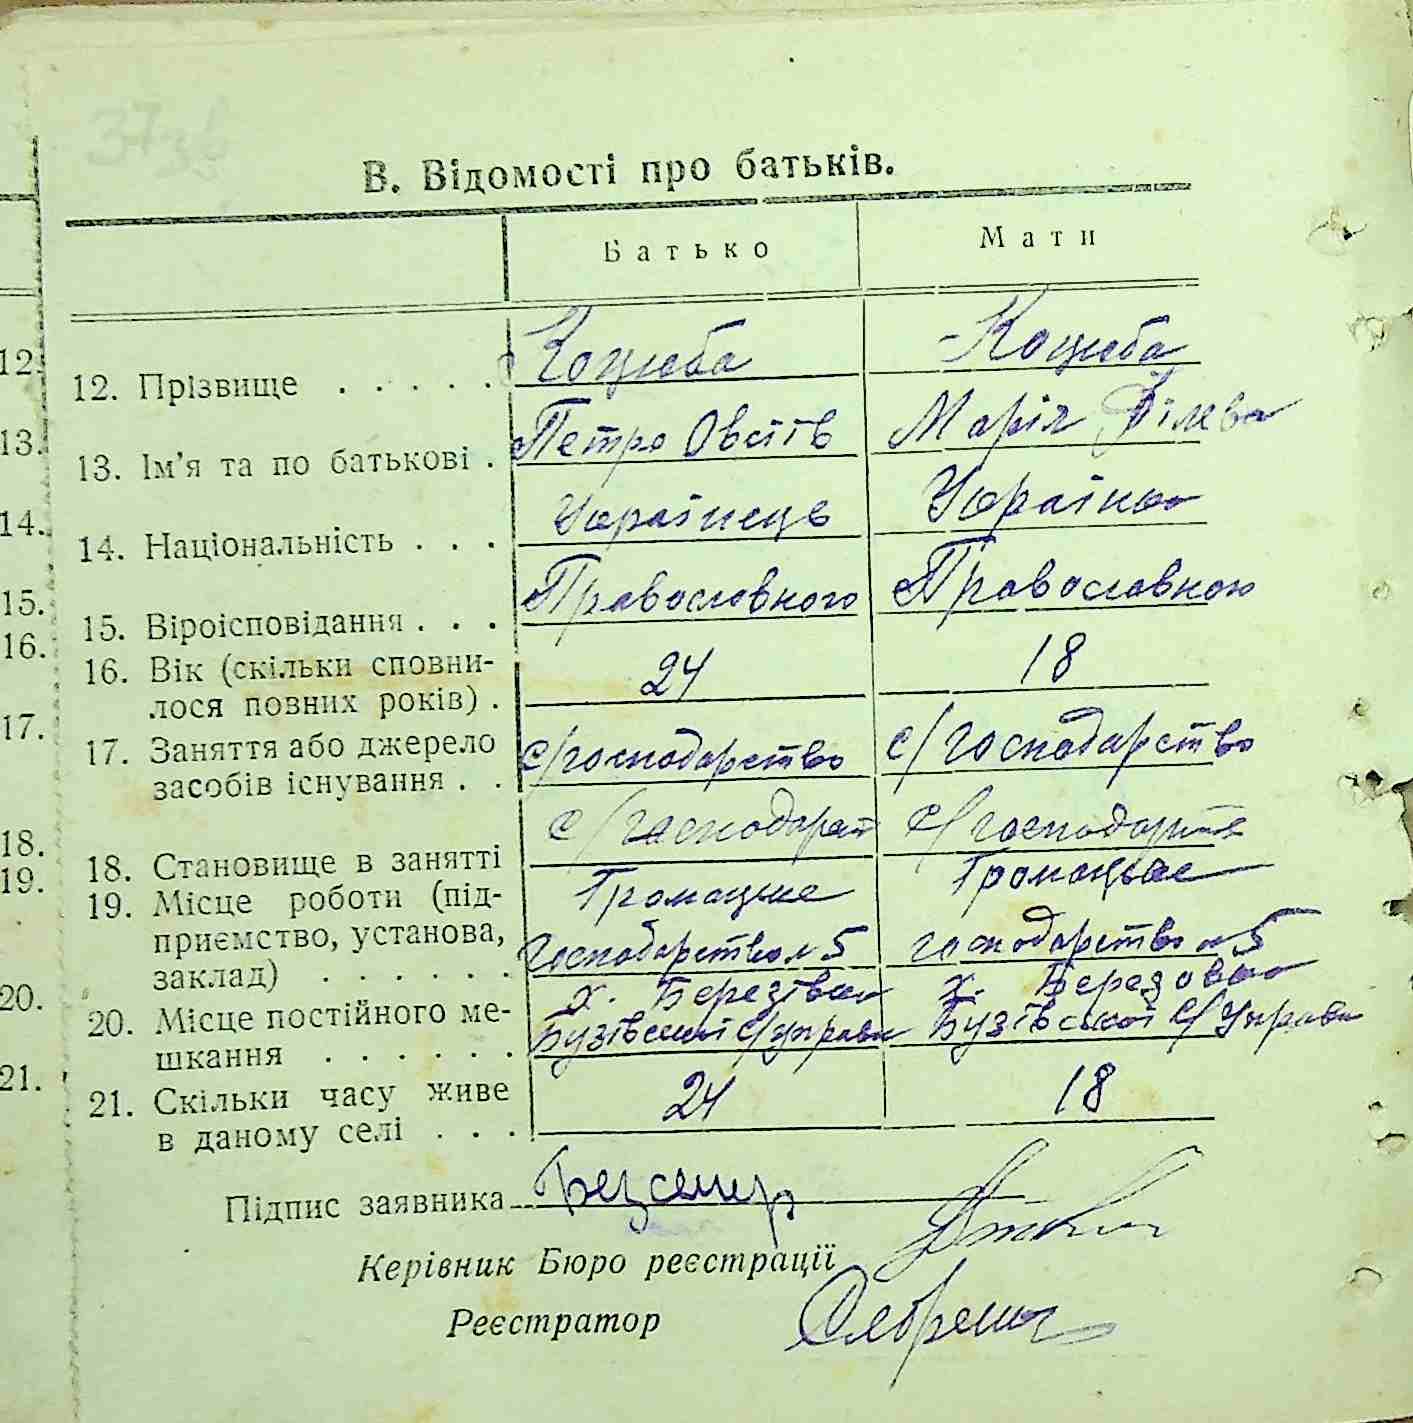 37зв
В. Відомості про батьків.
Батько Мати
12. Прізвище . . . . . Коцюба Коцюба
13. Ім'я та по батькові . Петро Овсіїв Марія
14. Національність . . . Українець Українка
15. Віроісповідання . . . Православного Православною
16. Вік (скільки сповни-
лося повних років) . 24 18
17. Заняття або джерело
засобів існування . . с/господарство с/господарство
18. Становище в занятті с/господарст с/господарств
19. Місце роботи (під- Громадське Громадське
приємство, установа, Господарство №5 господарство №5
заклад) . . . . . .
20. Місце постійного ме- х. Березівка х. Березовка
шкання . . . . . . Бузівської с/управи Бузівської с/управи
21. Скільки часу живе
в даному селі . . . 24 18
Підпис заявника
Керівник Бюро реєстрації
Реєстратор
12.
13.
14.
15.
16.
17.
18.
19.
20.
21.